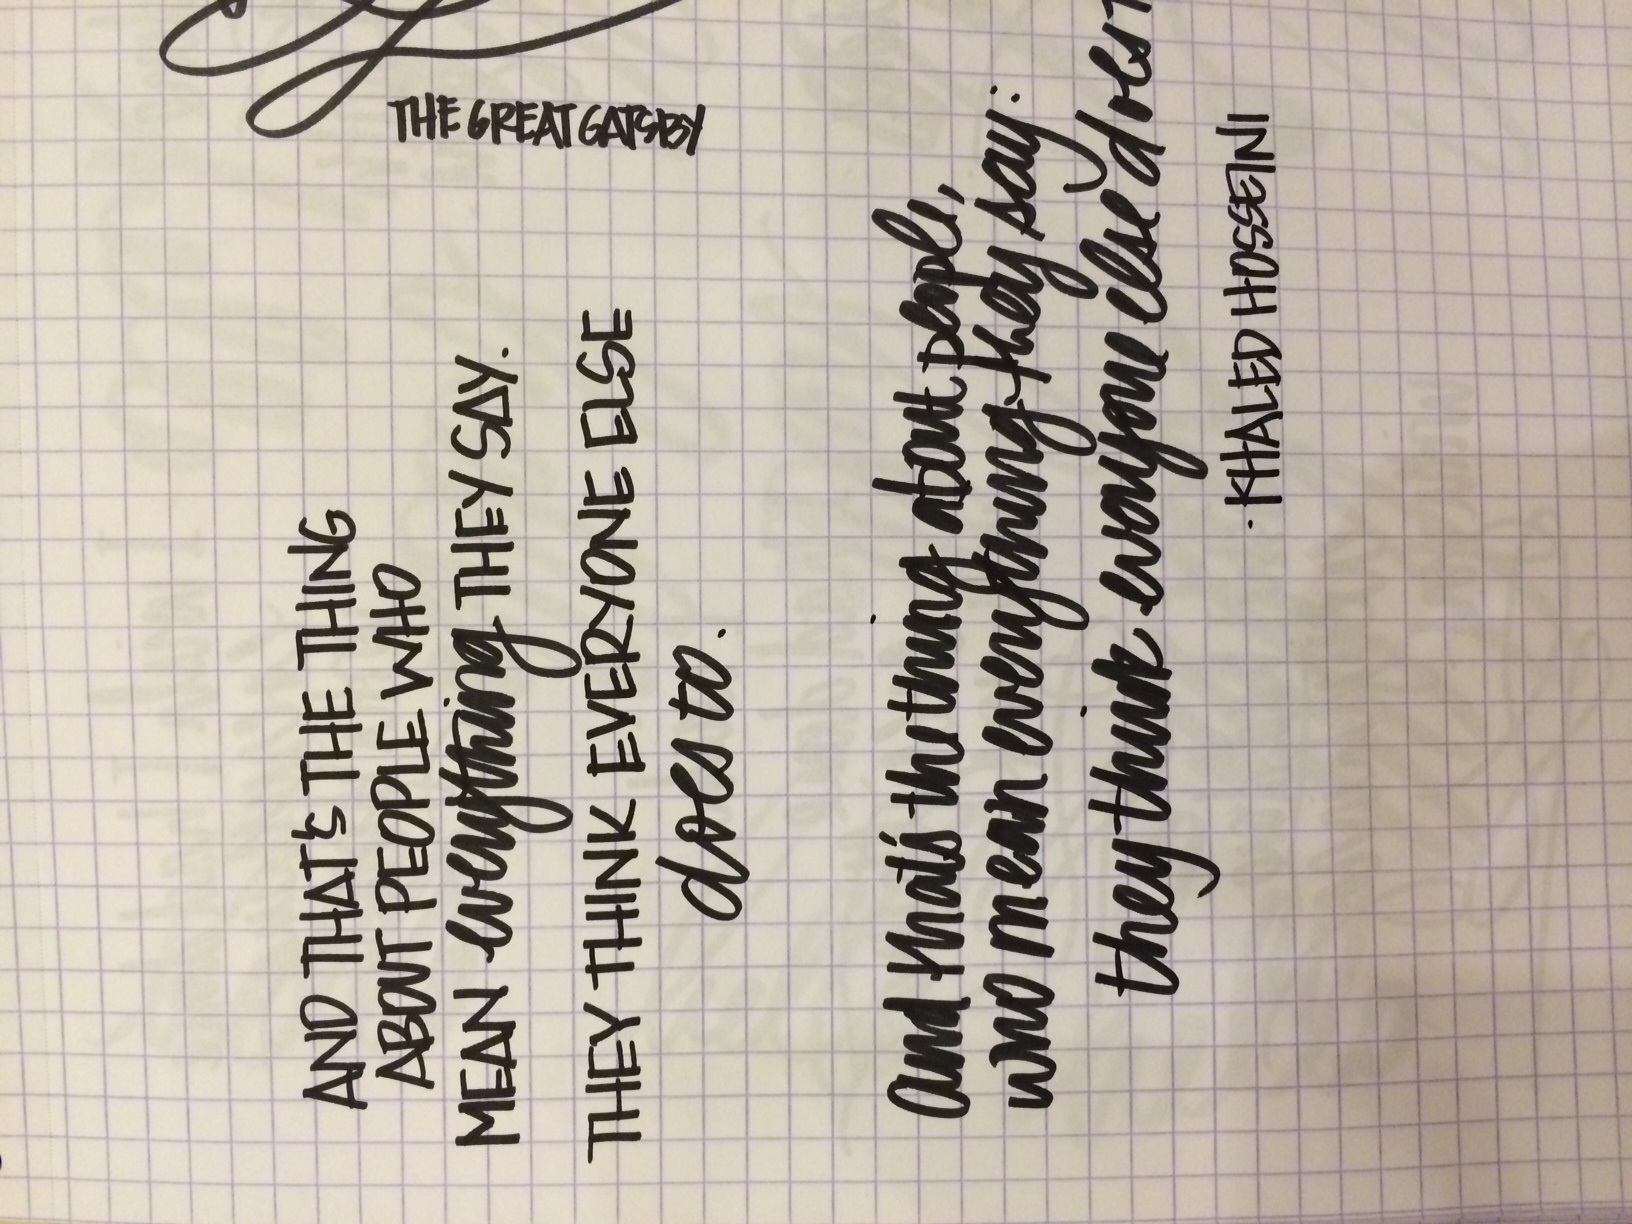 THE GREAT GATSBY
AND THAT'S THE THING
ABOUT PEOPLE WHO
MEAN everything THEY SAY.
THEY THINK EVERYONE ELSE
does to.
and that's the thing about people,
who mean everything they say:
they think everyone else does
· KHALED HOSSEINI